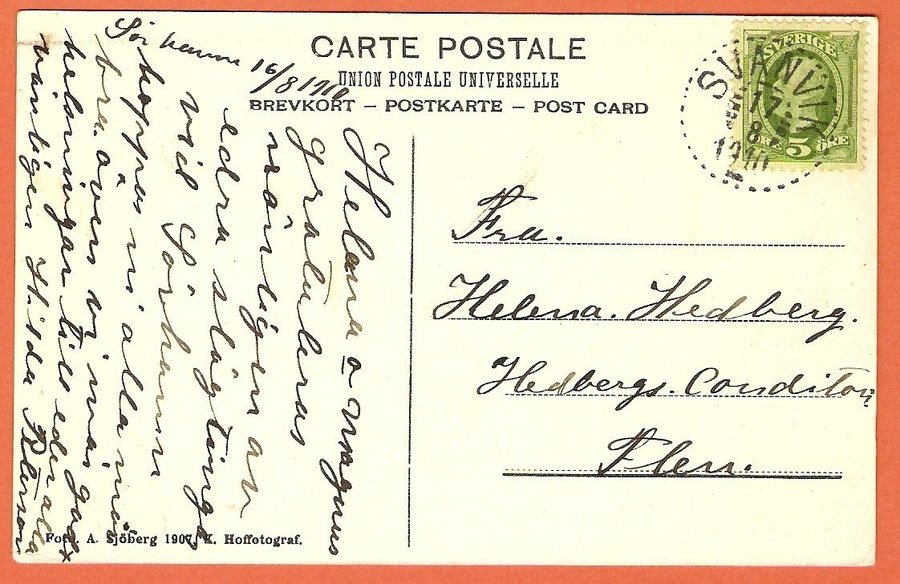 CARTE POSTALE
UNION POSTALE UNIVERSELLE
BREVKORT – POSTKARTE – POST CARD
SVERIGE
5
ÖRE ÖRE
SVANVIK
17 8
1910
Sörhamn 16/8 1910
Helena o Magnus
gratuleras
vänligen av
edra släktinga
vid Sörhamn
hoppas ni alla må
bra även vi må god
helsningar till eder alla
vänligen Hilda Peterson
Fru.
Helena. Hedberg.
Hedbergs. Conditori
Flen.
Foto. A. Sjöberg 1907. K. Hoffotograf.